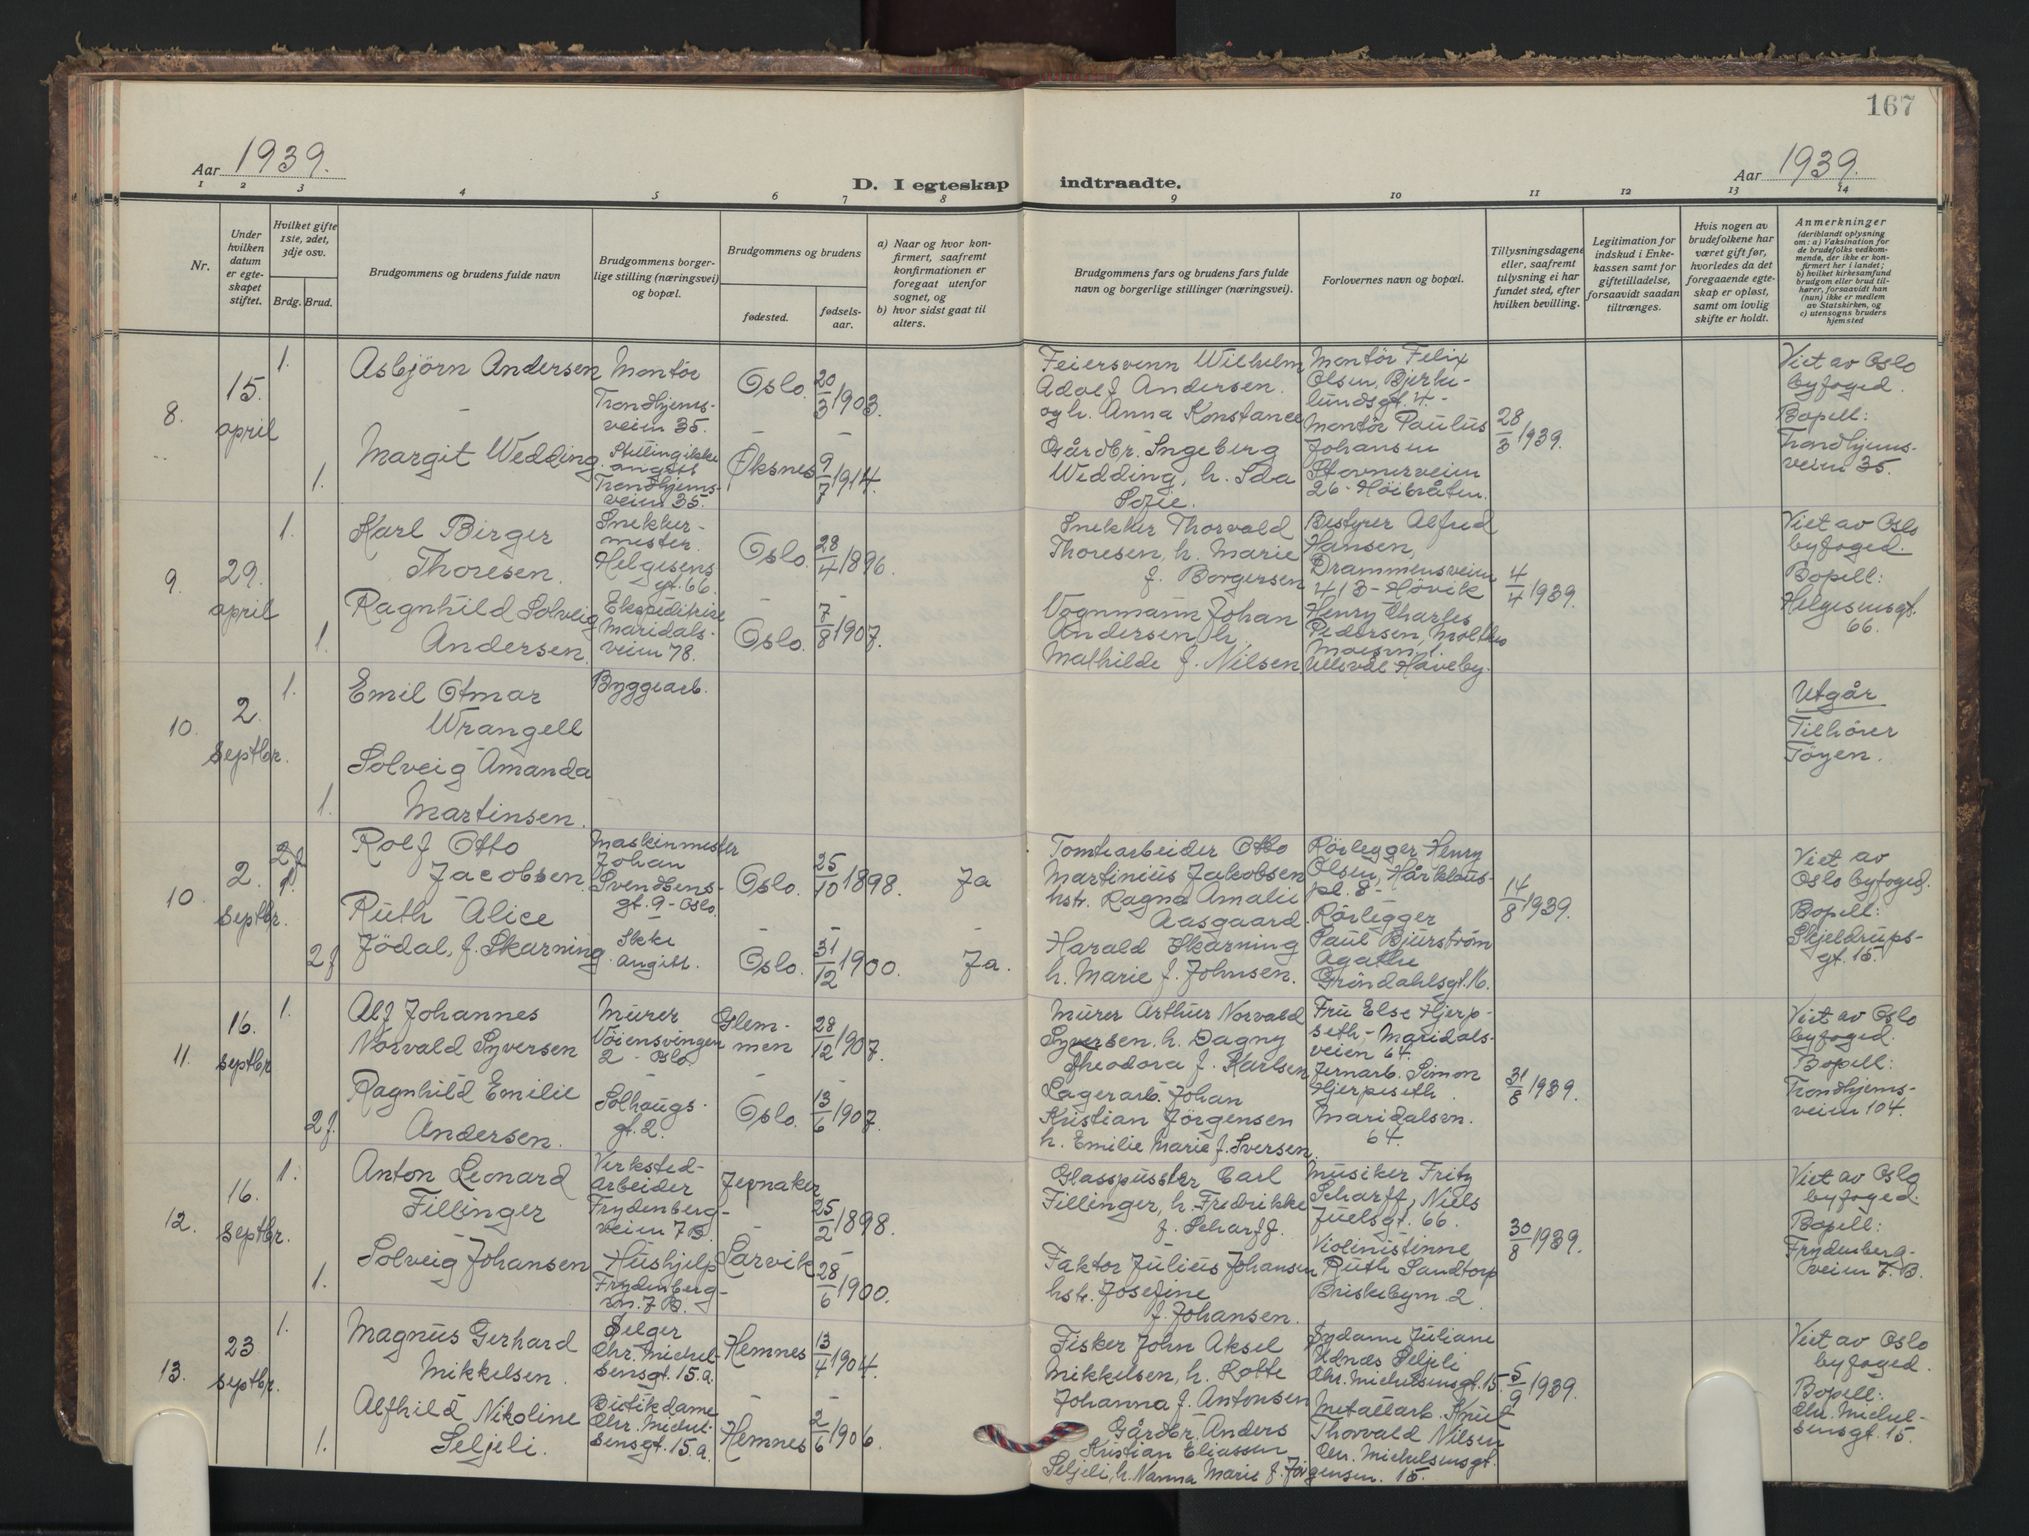 167
Aar 1939.
D. I egteskap indtraadte.
Aar 1939.
1 2 3 4 5 6 7 8 9 10 11 12 13 14
Nr.
Under hvilken datum er egteskapet stiftet.
Hvilket gifte 1ste, 2det, 3dje osv.
Brdg. Brud.
Brudgommens og brudens fulde navn
Brudgommens borgerlige stilling (næringsvei) og bopæl.
Brudgommens og brudens
fødested.
fødselsaar.
a) Naar og hvor konfirmert, saafremt konfirmationen er foregaat utenfor sognet, og
b) hvor sidst gaat til alters.
Brudgommens fars og brudens fars fulde navn og borgerlige stillinger (næringsvei).
Forlovernes navn og bopæl.
Tillysningsdagene eller, saafremt tillysning ei har fundet sted, efter hvilken bevilling.
Legitimation for indskud i Enkekassen samt for giftetilladelse, forsaavidt saadan tiltrænges.
Hvis nogen av brudefolkene har været gift før, hvorledes da det foregaaende egteskap er opløst, samt om lovlig skifte er holdt.
Anmerkninger
(deriblandt oplysning om: a) Vaksination for de brudefolks vedkommende, der ikke er konfirmert her i landet;
b) hvilket kirkesamfund brudgom eller brud tilhører, forsaavidt han (hun) ikke er medlem av Statskirken, og
c) utensogns bruders hjemsted
8.
15. april
1.
Asbjörn Andersen
Montör
Trondhjems-
veien 35.
Oslo.
20/3 1903.
Feiersvenn Wilhelm
Adolf Andersen.
og h. Anna Konstance
Montör Felix
Olsen, Bjerke-
lundsgt. 4 -
28/3 1939.
Viet av Oslo
byfoged.
Bopell:
Trondhjems-
veien 35.
1.
Margit Wedding
Stilling ikke
angitt
Trondhjems-
veien 35.
Øksnes
9/7 1914.
Gårdbr. Ingeberg
Wedding, h. Ida
Sofie.
Montör Paulus
Johansen
Stovnerveien
26 - Höibråten.
9.
29. april
1.
Karl Birger
Thoresen.
Snekker-
mester.
Helgesens
gt. 66.
Oslo.
28/4 1896.
Snekker Thorvald
Thoresen, h. Marie
f. Borgersen
Bestyrer Alfred
Hansen,
Drammensveien
413 - Hövik
4/4 1939.
Viet av Oslo
byfoged.
Bopell:
Helgesensgt.
66.
1.
Ragnhild Solveig
Andersen.
Ekspeditrise
Maridals-
veien 78.
Oslo.
7/8 1907.
Vognmann Johan
Andersen, h.
Mathilde f. Nilsen.
Henry Charles
Pedersen, Moltkes
Ullevål Haveby.
10.
2. septbr.
1.
Emil Otmar
Wrangell
Byggearb.
Utgår
Tilhörer
Töyen.
1.
Solveig Amanda
Martinsen.
10.
2. septbr.
Rolf Otto
Jacobsen.
Maskinmester
Johan
Svendsens-
gt. 9 - Oslo.
Oslo.
25/10 1898.
Ja
Tomtearbeider Otto
Martinius Jakobsen
hstr. Ragna Amalie
Aasgaard.
Rörlegger Henry
Olsen, Hårklaus-
pl. 8 -
14/8 1939.
Viet av
Oslo byfoged.
Bopell:
Skjeldrups-
gt. 15.
2 f
Ruth Alice
Jödal, f. Skarning
Ikke
angitt.
Oslo.
31/12 1900.
Ja.
Harald Skarning
h. Marie f. Johnsen.
Rörlegger
Paul Bjurström
Agathe
Gröndahlsgt. 16.
11.
16. septbr
1.
Alf Johannes
Norvald Syversen
Murer
Vöiensvingen
2 - Oslo.
Glem-
men
28/12 1907.
Murer Arthur Norvald
Syversen, h. Dagny
Theodora f. Karlsen
Fru Else Hjerp-
seth - Maridals-
veien 64.
31/8 1939.
Viet av Oslo
byfoged.
Bopell:
Trondhjems-
veien 104.
2 f.
Ragnhild Emilie
Andersen.
Solhaugs-
gt. 2.
Oslo.
13/6 1907.
Lagerarb. Johan
Kristian Jörgensen
h. Emilie Marie f. Iversen.
Jernarb. Simon
Hjerpseth
Maridalsen.
64.
12.
16. septbr.
1.
Anton Leonard
Fillinger
Verksted-
arbeider
Frydenberg-
veien 7 B.
Jevnaker
25/2 1898.
Glasspusster Carl
Fillinger, h. Fredrikke
f. Scharff.
Musiker Fritz
Scharff, Niels
Juelsgt. 66.
30/8 1939.
Viet av Oslo
byfoged.
Bopell:
Frydenberg-
veien 7. B.
1.
Solveig Johansen
Hushjelp
Frydenberg-
vn. 7 B.
Larvik
28/6 1900.
Faktor Julius Johansen
hstr. Josefine
f. Johansen.
Violinistinne
Ruth Sandtorp
Briskebyvn. 2
13.
23 septbr.
1.
Magnus Gerhard
Mikkelsen.
Selger
Chr. Michel-
sensgt. 15. a.
Hemnes
13/4 1904.
Fisker John Aksel
Mikkelsen, h. Lotte
Johanna f. Antonsen
Sydame Juliane
Udnæs Seljeli
Chr. Michelsensgt. 15.
5/9 1939.
Viet av Oslo
byfoged.
Bopell:
Chr. Michel-
sensgt. 15.
1.
Alfhild Nikoline
Seljeli.
Butikdame
Chr. Michel-
sensgt. 15. a.
Hemnes
2/6 1906.
Gårdbr. Anders
Kristian Eliassen
Seljeli, h. Nanna Marie f. Jörgensen.
Metallarb. Knut
Thorvald Nilsen
Chr. Michelsensgt.
15.